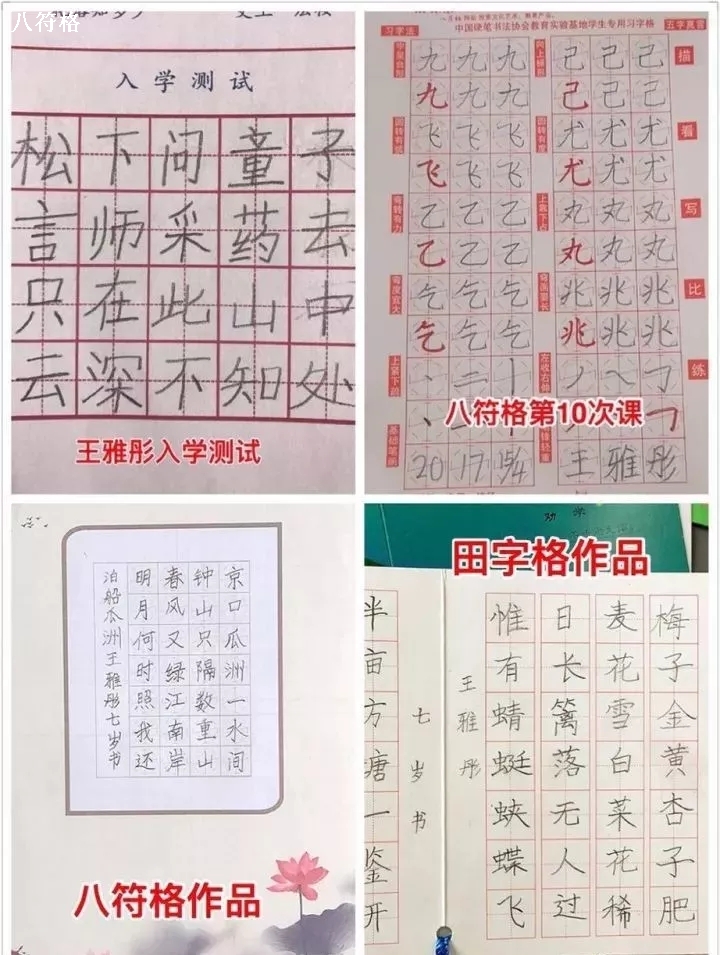 八符格
入学测试
松下问童子
言师采药去
只在此山中
云深不知处
王雅彤入学测试
中国硬笔书法协会教育实验基地学生专用习字格
习字法
五字真言
九九九 己己己
九九九 己己己
飞飞飞 尤尤尤
飞飞飞 尤尤尤
乙乙乙 丸丸丸
乙乙乙 丸丸丸
乞乞乞 兆兆兆
乞乞乞 兆兆兆
描
看
写
比
练
上紧下疏
左收右伸
基础笔画
八符格第10次课
2017 15/4 王雅彤
京口瓜洲一水间
钟山只隔数重山
春风又绿江南岸
明月何时照我还
泊船瓜洲王雅彤七岁书
八符格作品
劝学
田字格作品
梅子金黄杏子肥
麦花雪白菜花稀
日长篱落无人过
惟有蜻蜓蛱蝶飞
王雅彤
七岁书
半亩方塘一鉴开